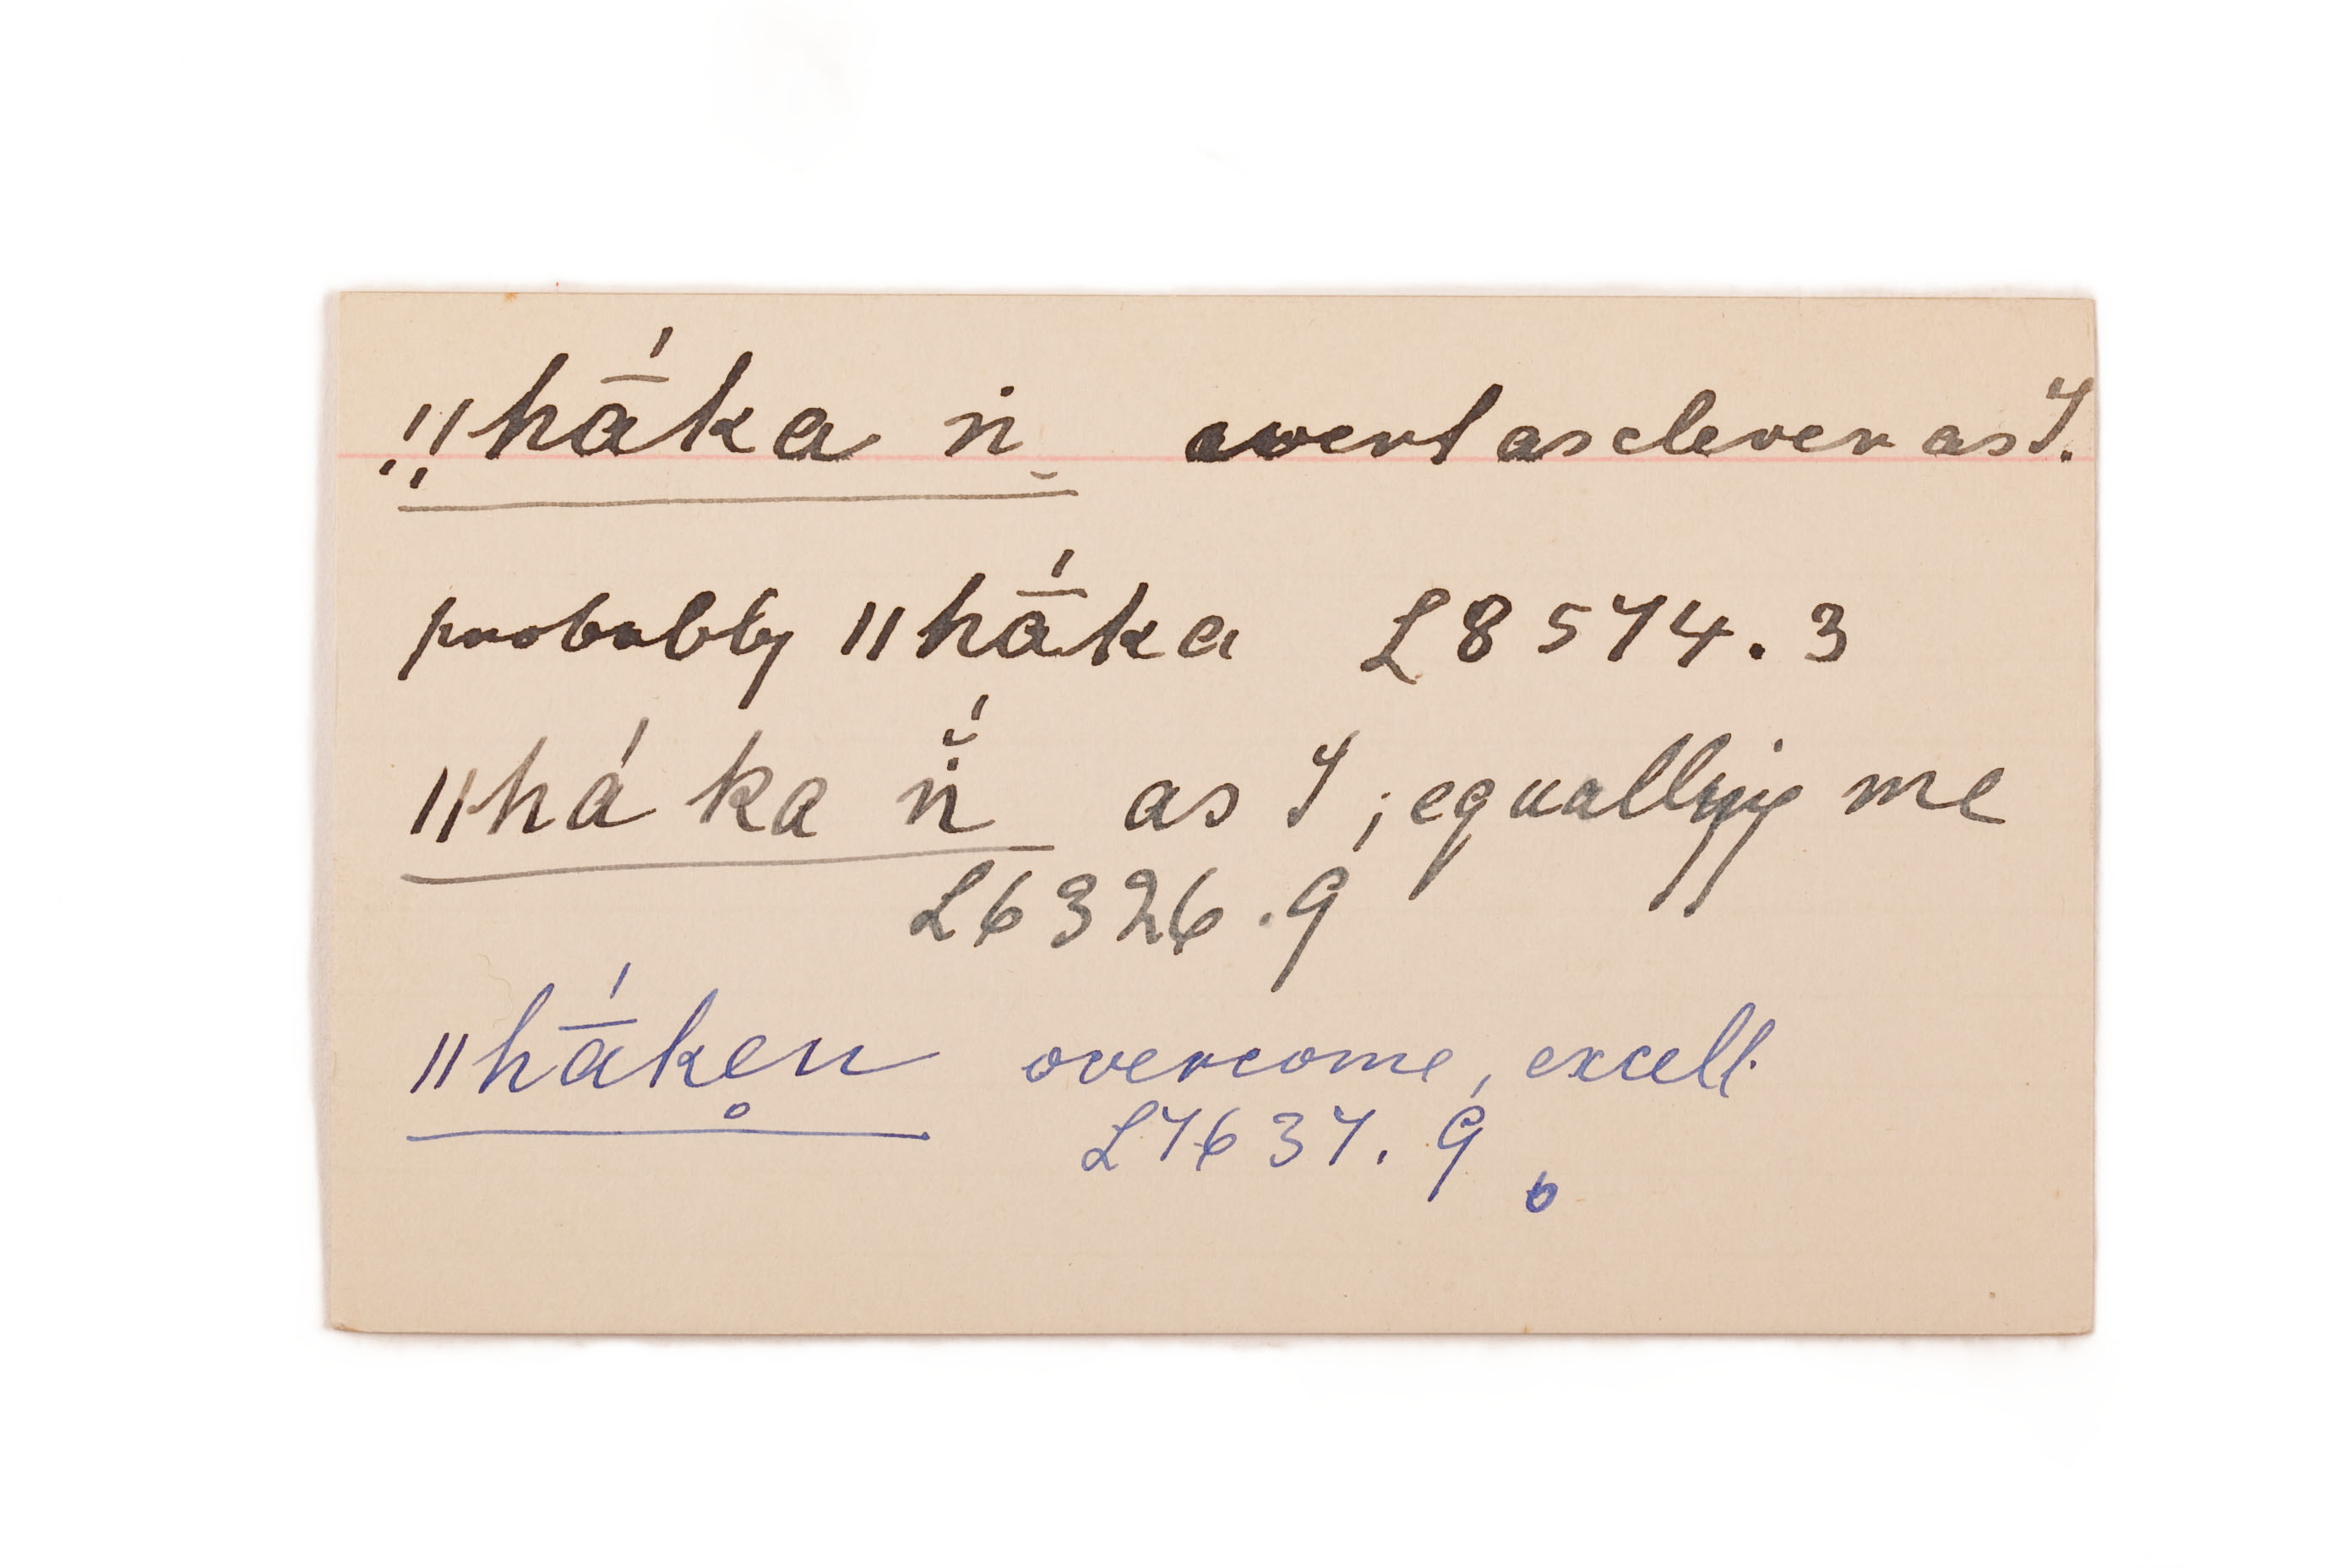 !!hā́ka ṅ wert as clever as I.
probably ǁhā́ka L8574.3
ǁhá ka ṅ̆́ as I ; equalling me
L6326.9
ǁhā́ke̥n overcome, excell.
L7637.9